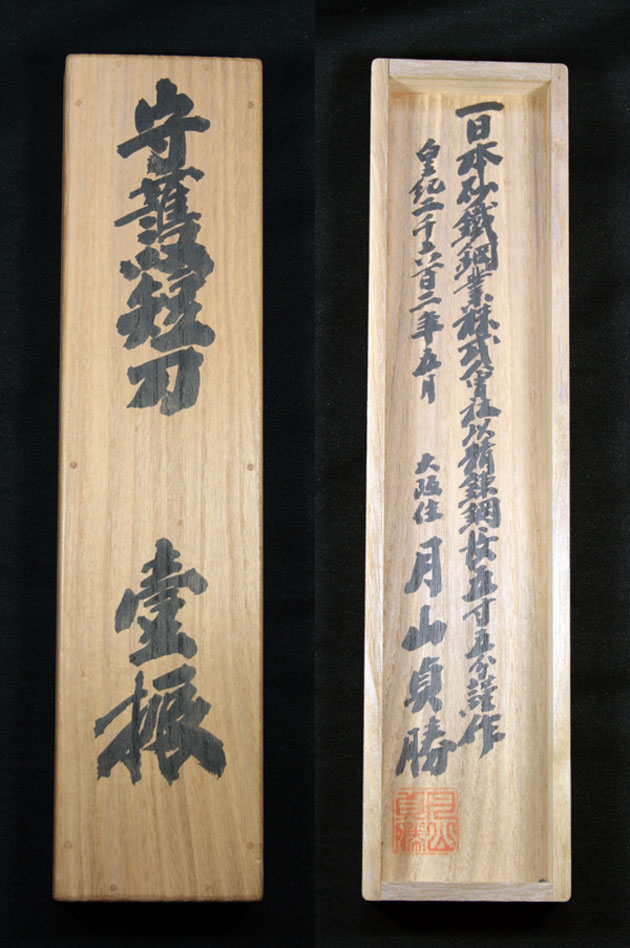 守護短刀 壹振
一日本砂鐵鋼業株式會社以精錬鋼長五寸五分謹作
皇紀二千六百二年五月 大阪住 月山貞勝
月山貞勝